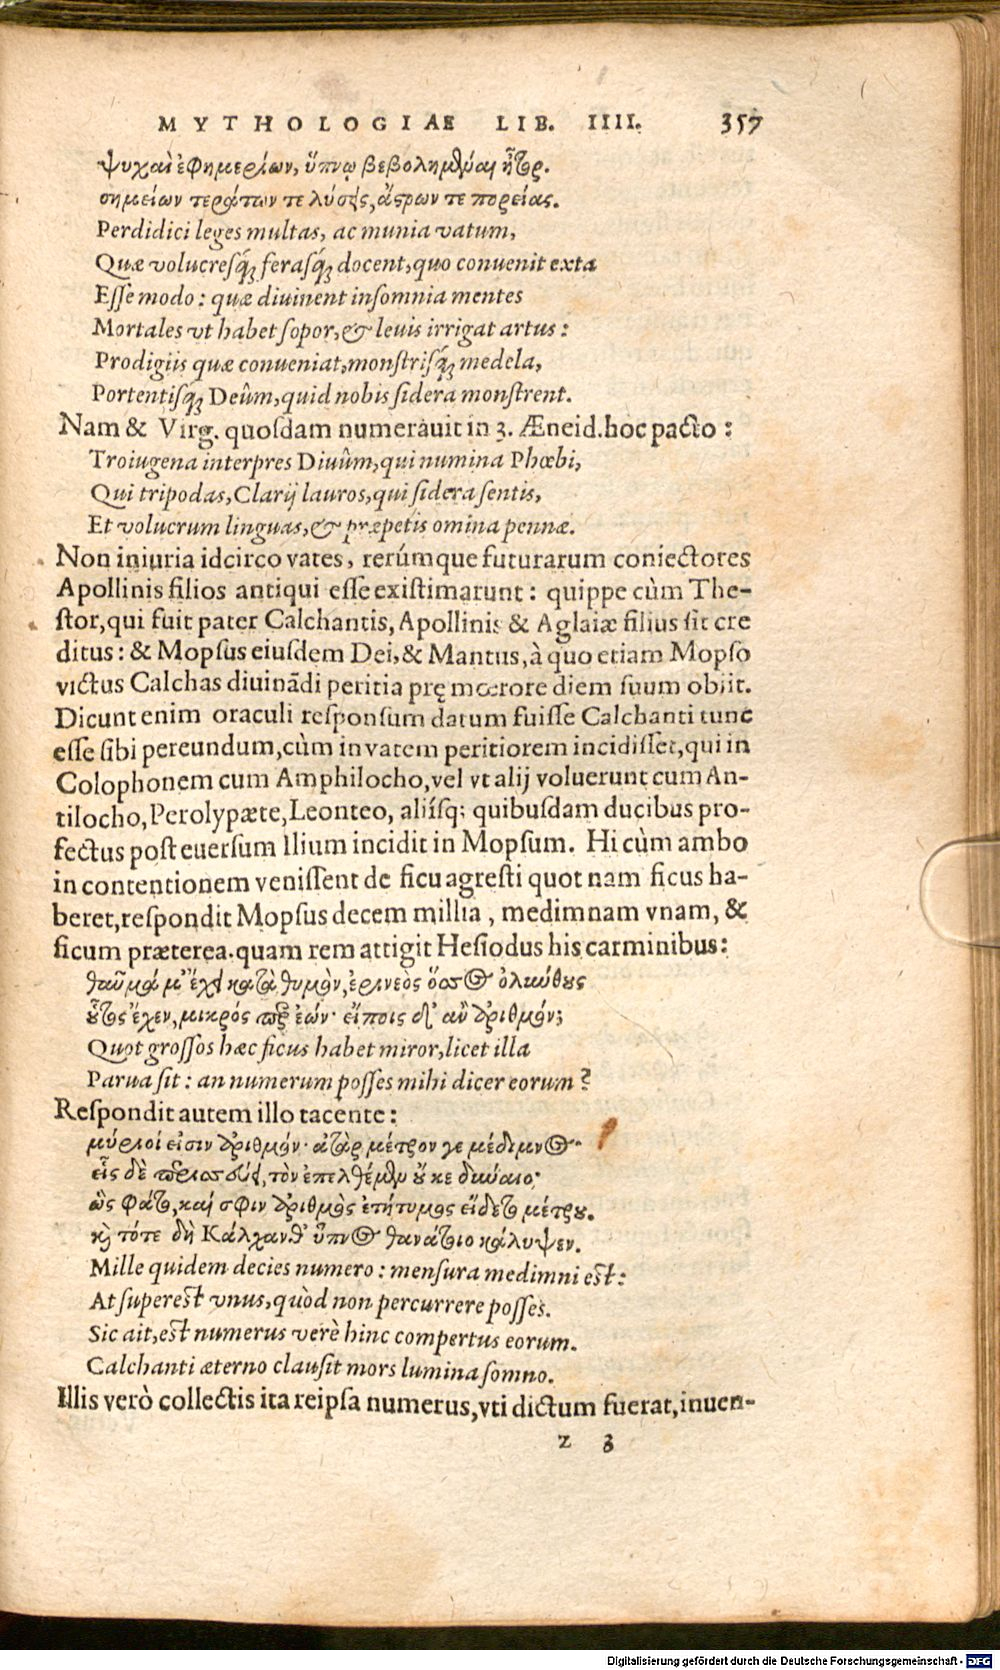 MYTHOLOGIAE LIB. IIII. 357
ψυχαὶ ἐφημερίων, ὕπνῳ βεβολημέναι ἦτορ.
σημείων τεράτων τε λύσεις, ἄστρων τε πορείας.
Perdidici leges multas, ac munia vatum,
Quæ volucresq́; ferasq́; docent, quo convenit exta
Esse modo: quæ diuinent insomnia mentes
Mortales vt habet sopor, & leuis irrigat artus:
Prodigiis quæ conueniat, monstrisq́; medela,
Portentisq́; Deûm, quid nobis sidera monstrent.
Nam & Virg. quosdam numerauit in 3. Æneid. hoc pacto:
Troiugena interpres Diuûm, qui numina Phœbi,
Qui tripodas, Clarij lauros, qui sidera sentis,
Et volucrum linguas, & præpetis omina pennæ.
Non iniuria idcirco vates, rerúmque futurarum coniectores
Apollinis filios antiqui esse existimarunt: quippe cùm The-
stor, qui fuit pater Calchantis, Apollinis & Aglaiæ filius sit cre
ditus: & Mopsus eiusdem Dei, & Mantus, à quo etiam Mopso
victus Calchas diuinãdi peritia prę mœrore diem suum obiit.
Dicunt enim oraculi responsum datum fuisse Calchanti tunc
esse sibi pereundum, cùm in vatem peritiorem incidisset, qui in
Colophonem cum Amphilocho, vel vt alij voluerunt cum An-
tilocho, Perolypæte, Leonteo, aliísq; quibusdam ducibus pro-
fectus post euersum Ilium incidit in Mopsum. Hi cùm ambo
in contentionem venissent de ficu agresti quot nam ficus ha-
beret, respondit Mopsus decem millia, medimnam vnam, &
ficum præterea. quam rem attigit Hesiodus his carminibus:
θαῦμά μ' ἔχει κατὰ θυμὸν, ἐρινεὸς ὅσσος ὀλύνθους
οὗτος ἔχεν, μικρός περ ἐών· εἴποις δ' ἂν ἀριθμόν;
Quot grossos hæc ficus habet miror, licet illa
Parua sit: an numerum posses mihi dicer eorum?
Respondit autem illo tacente:
μύριοί εἰσιν ἀριθμόν· ἀτὰρ μέτρον γε μέδιμνος·
εἷς δὲ περισσεύει, τὸν ἐπελθέμεν οὔ κε δύναιο·
ὣς φάτο, καί σφιν ἀριθμὸς ἐτήτυμος εἴδετο μέτρου.
καὶ τότε δὴ Κάλχανθ' ὕπνος θανάτοιο κάλυψεν.
Mille quidem decies numero: mensura medimni est:
At superest vnus, quòd non percurrere posses.
Sic ait, est numerus verè hinc compertus eorum.
Calchanti æterno clausit mors lumina somno.
Illis verò collectis ita reipsa numerus, vti dictum fuerat, inuen-
z 3
Digitalisierung gefördert durch die Deutsche Forschungsgemeinschaft - DFG